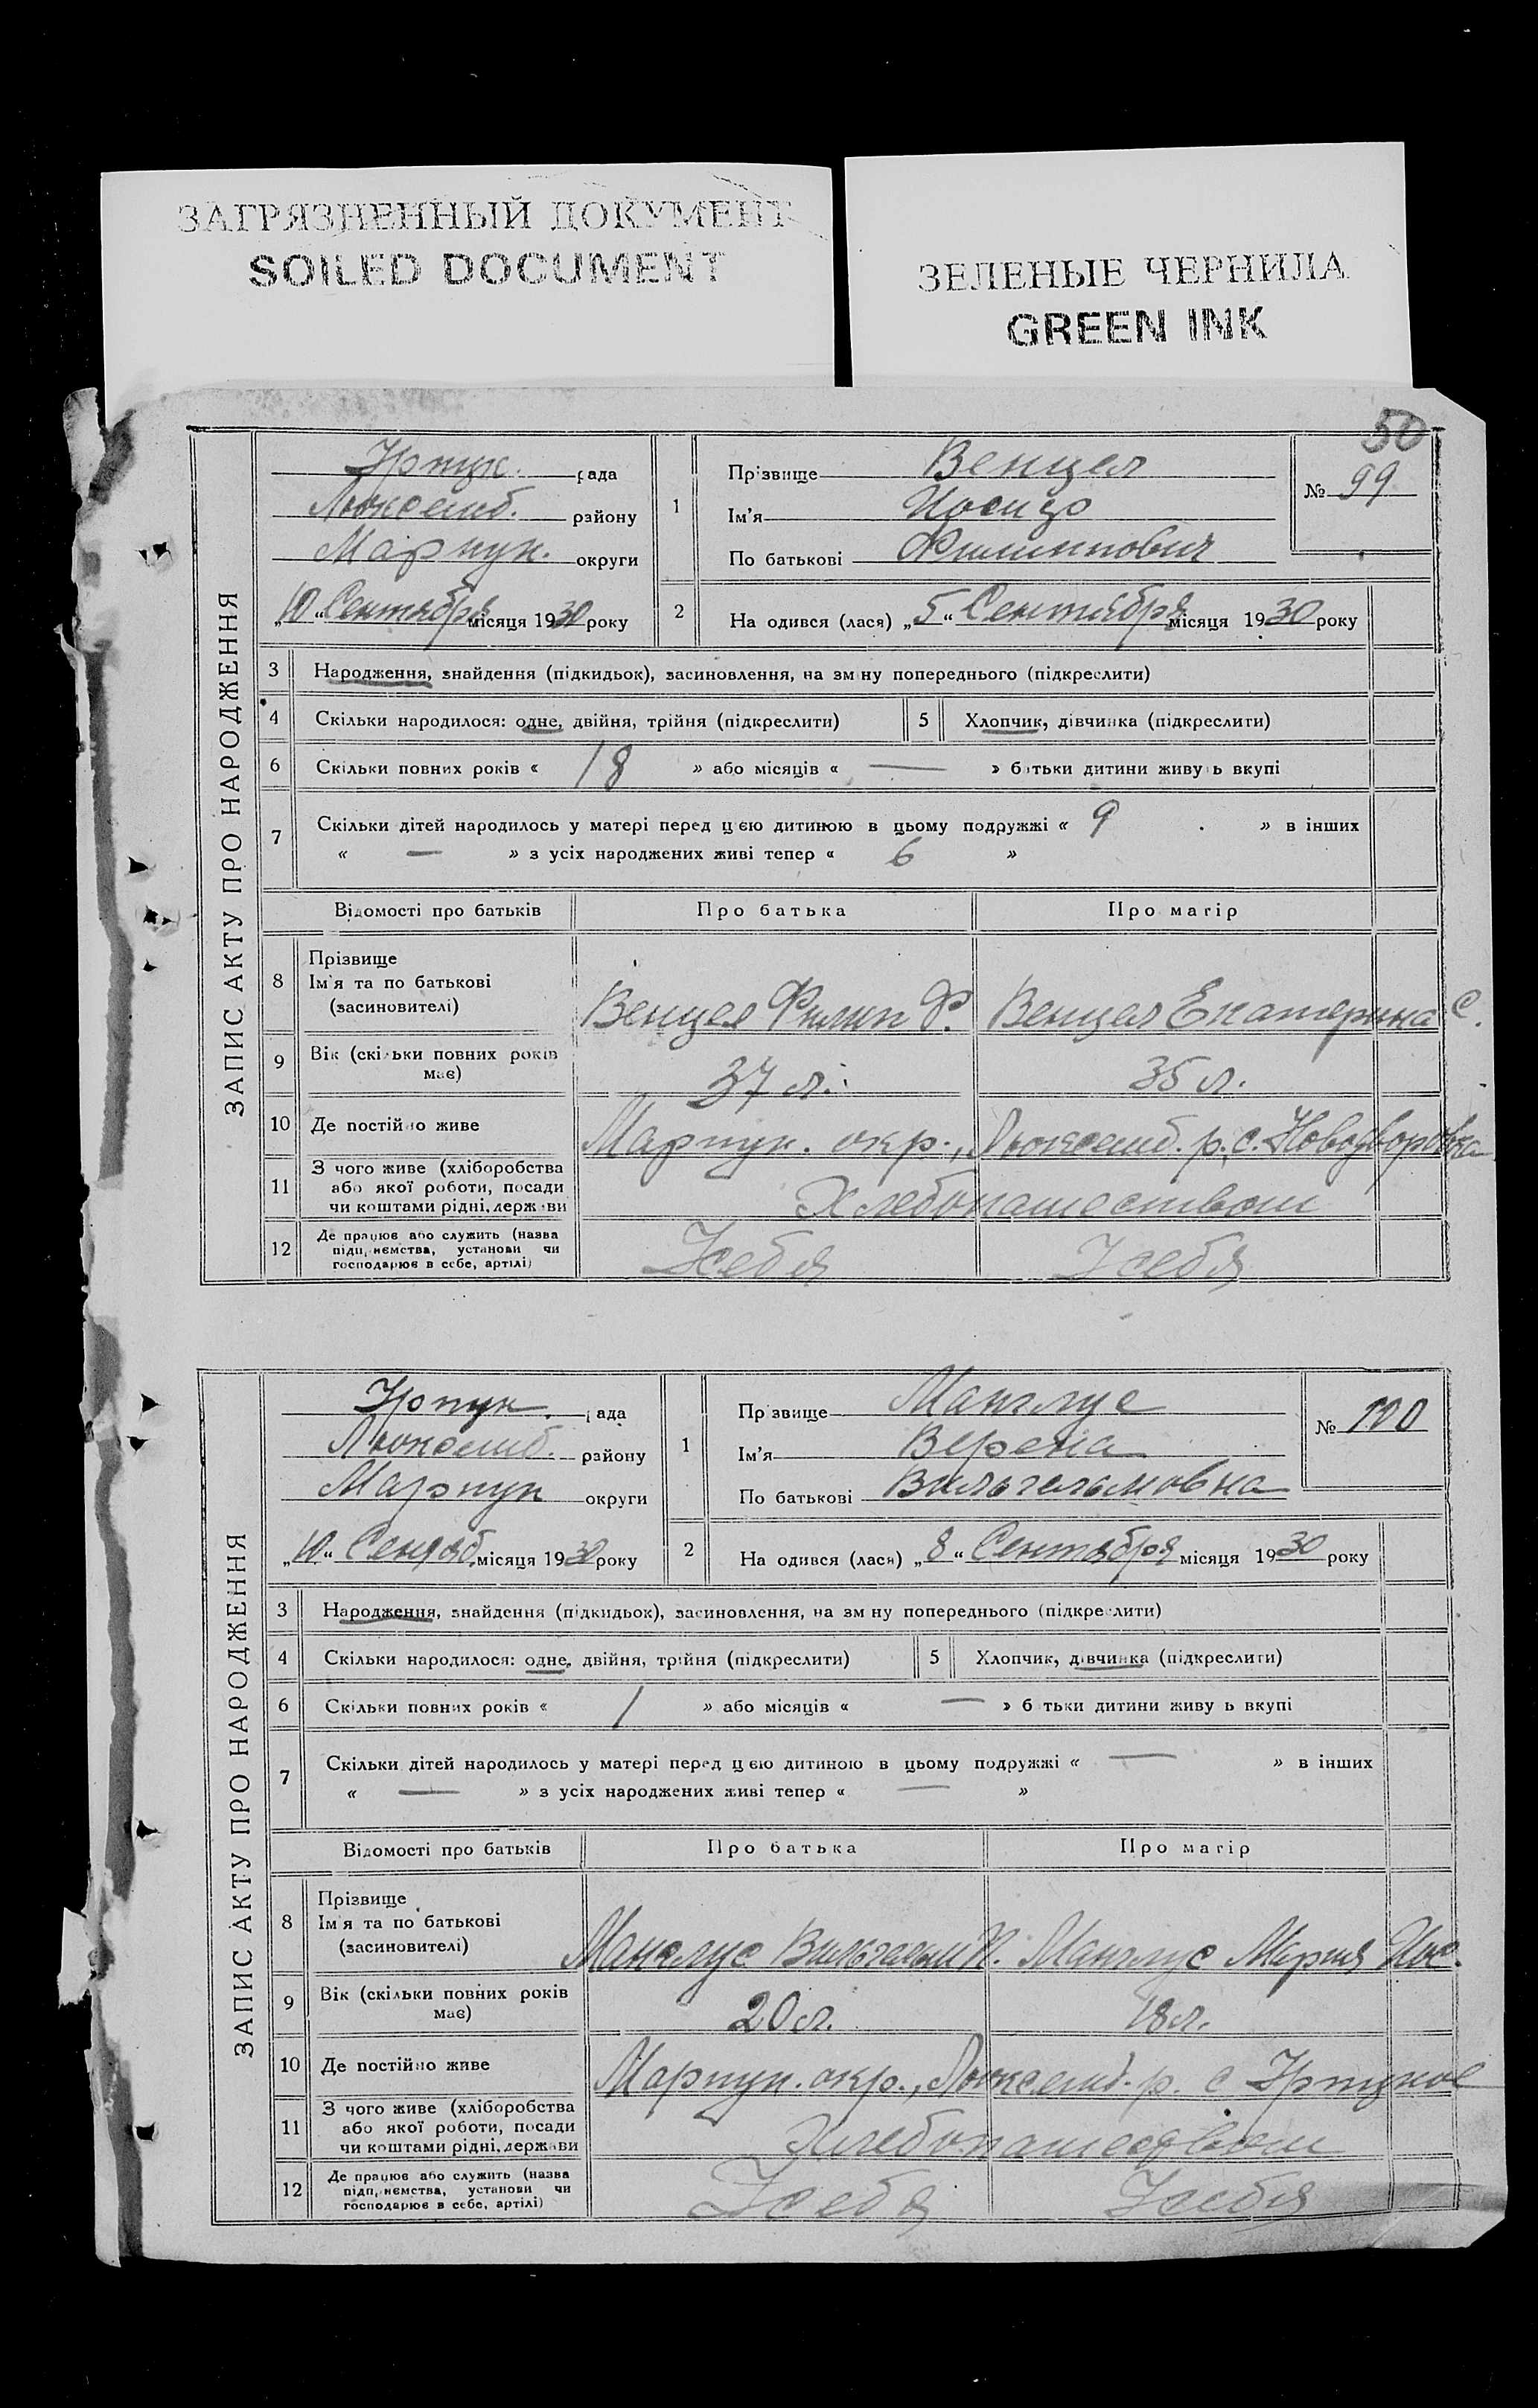 ЗАГРЯЗНЕННЫЙ ДОКУМЕНТ
SOILED DOCUMENT
ЗЕЛЕНЫЕ ЧЕРНИЛА
GREEN INK
50
ЗАПИС АКТУ ПРО НАРОДЖЕННЯ
рада
Люксемб. району
Мариуп. округи
„10“ Сентября місяця 1930 року
1 Прізвище Венцел
Ім'я Иосиф
По батькові Филиппович
№ 99
2 На одився (лася) „5“ Сентября місяця 1930 року
3 Народження, знайдення (підкидьок), засиновлення, на зміну попереднього (підкреслити)
4 Скільки народилося: одне, двійня, трійня (підкреслити) 5 Хлопчик, дівчинка (підкреслити)
6 Скільки повних років « 18 » або місяців « — » батьки дитини живуть вкупі
7 Скільки дітей народилось у матері перед цією дитиною в цьому подружжі « 9 » в інших
« — » з усіх народжених живі тепер « 6 »
Відомості про батьків Про батька Про матір
8 Прізвище
Ім'я та по батькові
(засиновителі)
Венцел Филип Ф. Венцел Екатерина С.
9 Вік (скільки повних років має) 37 л. 35 л.
10 Де постійно живе Мариуп. окр., Люксемб. р. с. Новодворовка
11 З чого живе (хліборобства
або якої роботи, посади
чи коштами рідні, держави
Хлебопашеством
12 Де працює або служить (назва
підприємства, установи чи
господарює в себе, артілі)
У себя У себя
ЗАПИС АКТУ ПРО НАРОДЖЕННЯ
рада
Люксемб. району
Мариуп округи
„10“ Сентяб. місяця 1930 року
1 Прізвище Манглус
Ім'я Верена
По батькові Вильгельмовна
№ 100
2 На одився (лася) „8“ Сентября місяця 1930 року
3 Народження, знайдення (підкидьок), засиновлення, на зміну попереднього (підкреслити)
4 Скільки народилося: одне, двійня, трійня (підкреслити) 5 Хлопчик, дівчинка (підкреслити)
6 Скільки повних років « 1 » або місяців « — » батьки дитини живуть вкупі
7 Скільки дітей народилось у матері перед цією дитиною в цьому подружжі « — » в інших
« — » з усіх народжених живі тепер « — »
Відомості про батьків Про батька Про матір
8 Прізвище
Ім'я та по батькові
(засиновителі)
Манглус Вильгельм Манглус Мария
9 Вік (скільки повних років має) 20 л. 18 л.
10 Де постійно живе Мариуп. окр., Люксемб. р. с
11 З чого живе (хліборобства
або якої роботи, посади
чи коштами рідні, держави
Хлебопашеством
12 Де працює або служить (назва
підприємства, установи чи
господарює в себе, артілі)
У себя У себя